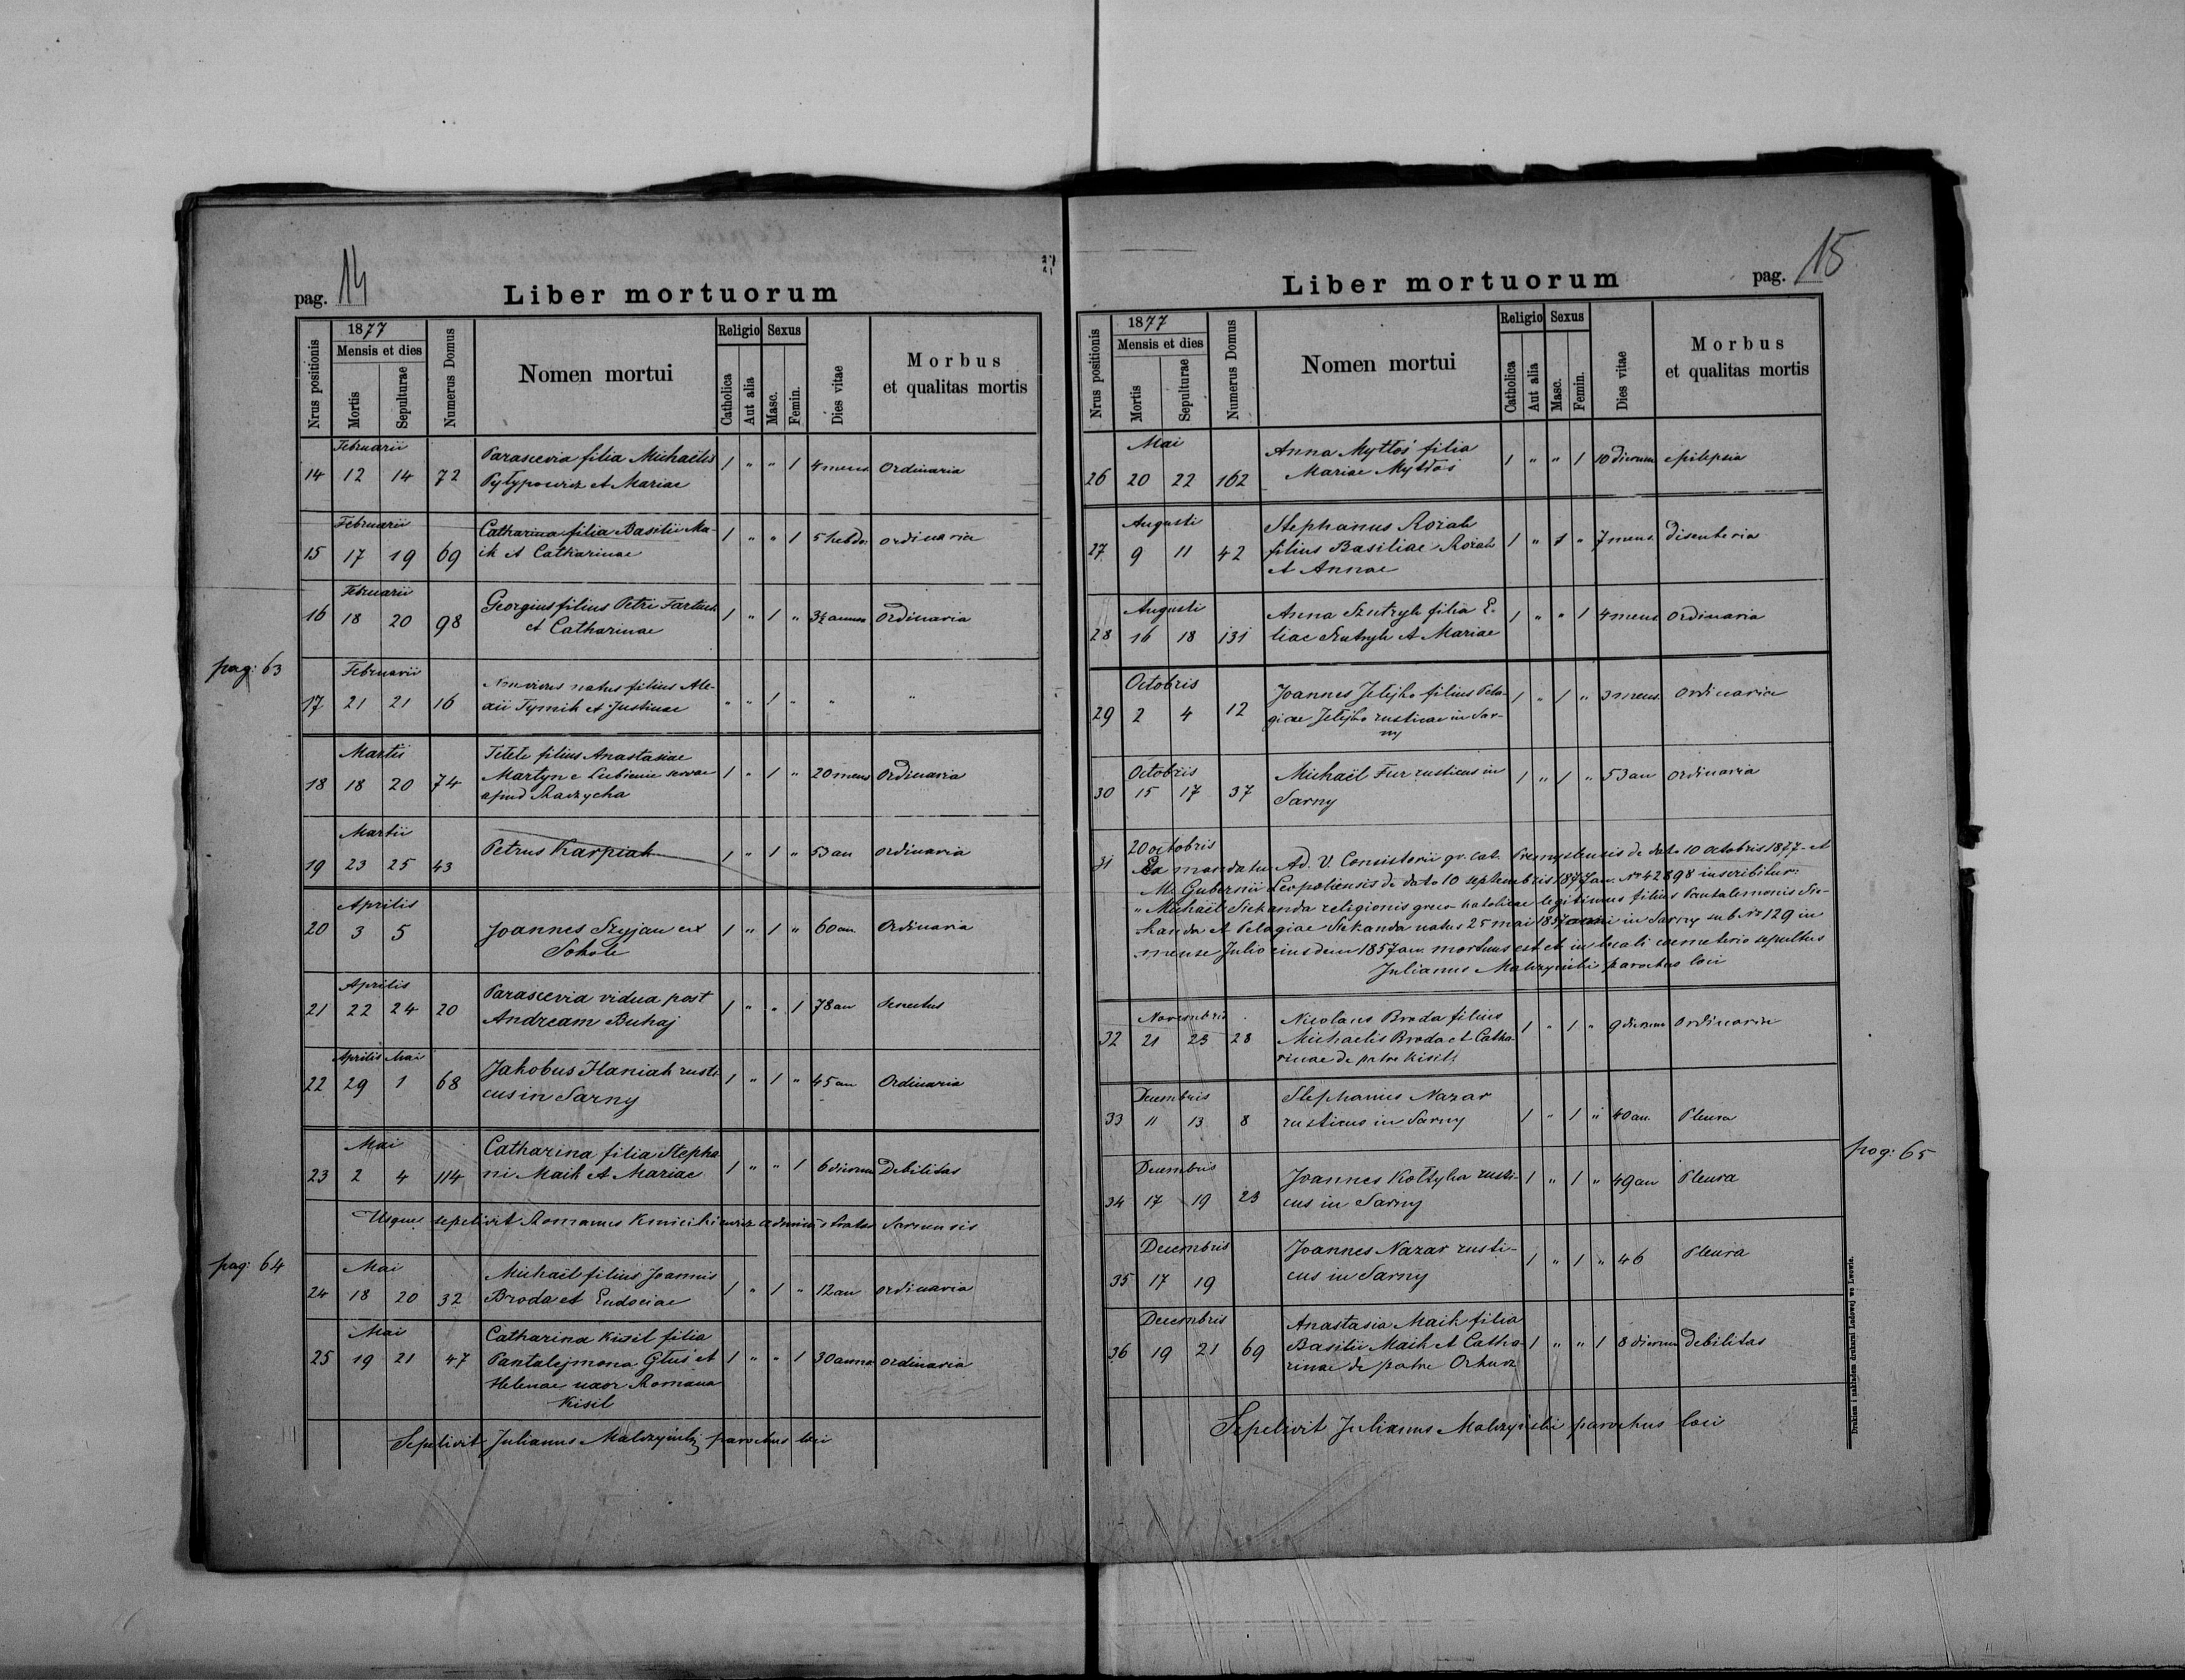 pag. 14
Liber mortuorum
Nrus positionis
1877
Mensis et dies
Mortis
Sepulturae
Numerus Domus
Nomen mortui
Religio
Catholica
Aut alia
Sexus
Masc.
Femin.
Dies vitae
Morbus
et qualitas mortis
Februarii
Parascevia filia Michaëlis
14 12 14 72 Pylypowicz et Mariae 1 " " 1 4 mens Ordinaria
Februarii
Catharina filia Basilii Ma-
15 17 19 69 ik et Catharinae 1 " " 1 5 hebdo. ordinaria
Februarii
Georgius filius Petri Fartuch
16 18 20 98 et Catharinae 1 " 1 " 3½ annor Ordinaria
pag: 63
Februarii
Non vivus natus filius Ale-
17 21 21 16 xii Tymik et Justinae " " 1 " " "
Martii
filius Anastasiae
Martyn e Lubienie servae
18 18 20 74 apud 1 " 1 " 20 mens Ordinaria
Martii
19 23 25 43 Petrus Karpiak 1 " 1 " 53 an ordinaria
Aprilis
20 3 5 Joannes Szyjan ex 1 " 1 " 60 an. Ordinaria
Sokole
Aprilis
Parascevia vidua post
21 22 24 20 Andream Buhaj 1 " " 1 78 an Senectus
Aprilis Mai
Jakobus Haniak rusti
22 29 1 68 cus in Sarny 1 " 1 " 45 an Ordinaria
Mai
Catharina filia Stepha
23 2 4 114 ni Maik et Mariae 1 " " 1 6 dierum Debilitas
Usque sepelivit Romanus administrator Sarnensis
pag: 64
Mai
Michaël filius Joannis
24 18 20 32 Broda et Eudociae 1 " 1 " 12 an ordinaria
Mai
Catharina Kisil filia
25 19 21 47 Pantalejmona et 1 " " 1 30 anno ordinaria
Helenae uxor Romana
Kisil
Sepelivit Julianus Malczyński parochus loci
pag. 15
Liber mortuorum
Nrus positionis
1877
Mensis et dies
Mortis
Sepulturae
Numerus Domus
Nomen mortui
Religio
Catholica
Aut alia
Sexus
Masc.
Femin.
Dies vitae
Morbus
et qualitas mortis
Mai
Anna Myttoś filia
26 20 22 162 Mariae 1 " " 1 10 dierum epilepsia
Augusti
Stephanus Roiak
27 9 11 42 filius Basiliae Roiak 1 " 1 " 7 mens. disenteria
et Annae
Augusti
Anna Szutryk filia E-
28 16 18 131 liae Szutryk et Mariae 1 " " 1 4 mens Ordinaria
Octobris
Joannes filius Pela-
29 2 4 12 giae rusticae in Sar- 1 " 1 " 3 mens. Ordinaria
ny
Octobris
Michaël Fur rusticus in
30 15 17 37 Sarny 1 " 1 " 53 an ordinaria
20 octobris
31 Ex mandatu Ad. V. Consistorii gr. cat. Premysliensis de dato 10 octobris 1877 et
M. Gubernii Leopoliensis de dato 10 septembris 1877 an. No 42898 inscribitur:
" Michaël Siekanda religionis greco katolicae legitimus filius Pantalemonis Sie-
kanda et Pelagiae Siekanda natus 25 mai 1857 anni in Sarny sub No 129 in
mense Julio eiusdem 1857 an. mortuus est et in locali coemeterio sepultus
Julianus Malczyński parochus loci
Novembris
Nicolaus Broda filius
32 21 23 28 Michaelis Broda et Catha- 1 " 1 " 9 dierum Ordinaria
rinae de patre Kisil
Decembris
Stephanus Nazar
33 11 13 8 rusticus in Sarny 1 " 1 " 40 an. Pleura
pag: 65
Decembris
Joannes Kottyka rusti-
34 17 19 23 cus in Sarny 1 " 1 " 49 an Pleura
Decembris
Joannes Nazar rusti-
35 17 19 cus in Sarny 1 " 1 " 46 Pleura
Decembris
Anastasia Maik filia
36 19 21 69 Basilii Maik et Catha- 1 " " 1 8 dierum debilitas
rinae de patre
Sepelivit Julianus Malczyński parochus loci
Drukiem i nakładem drukarni Ludowej we Lwowie.